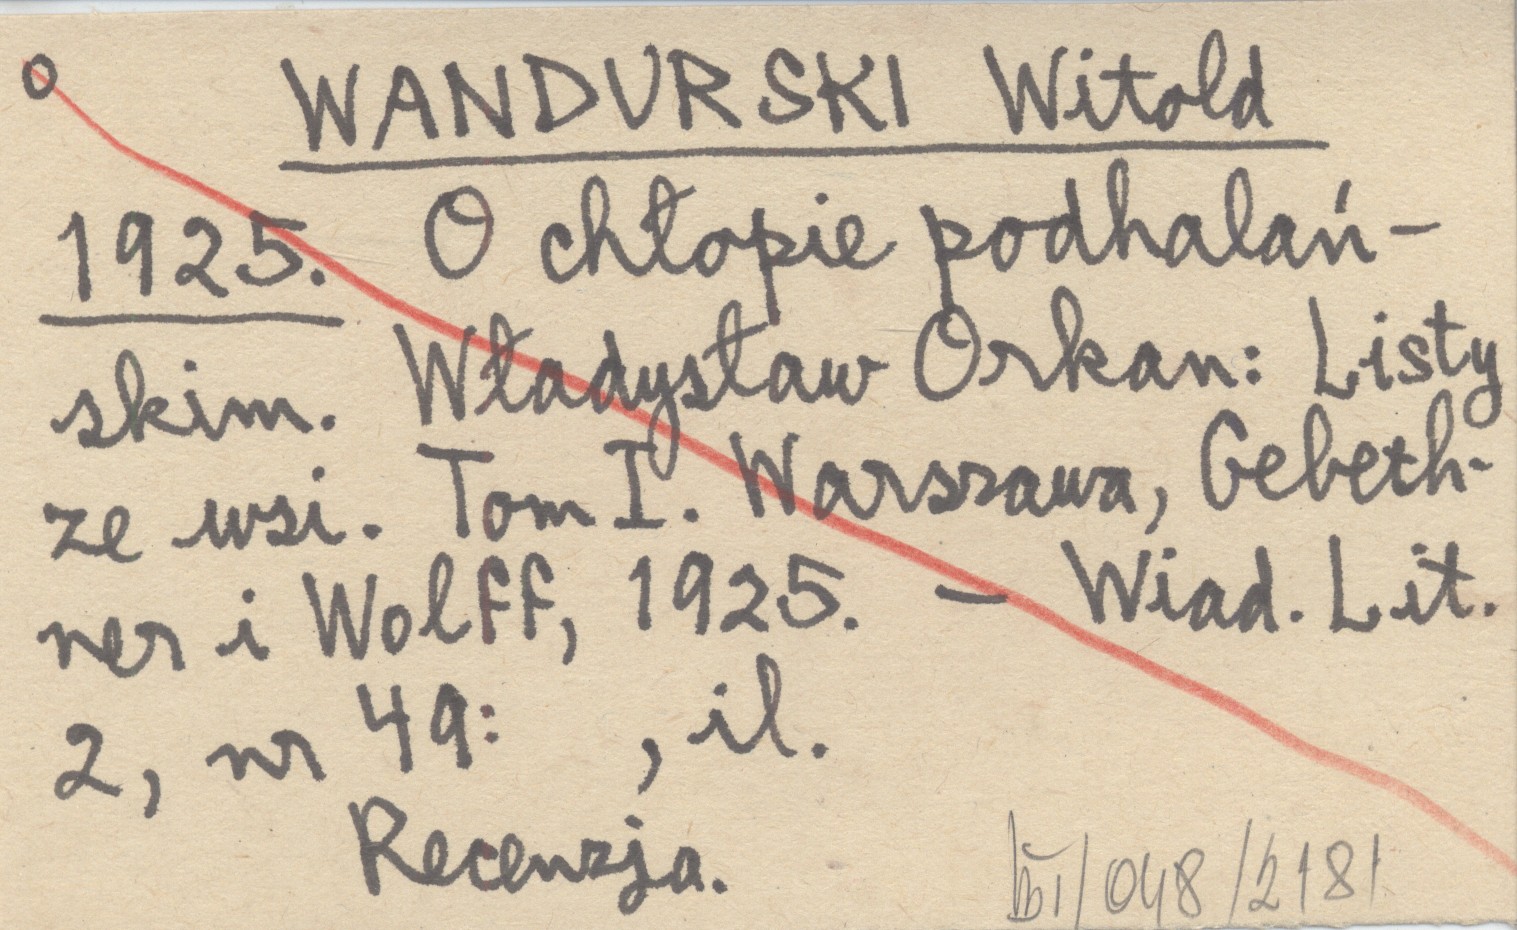 o WANDURSKI Witold
1925. O chłopie podhalań-
skim. Władysław Orkan: Listy
ze wsi. Tom I. Warszawa, Gebeth-
ner i Wolff, 1925. – Wiad. Lit.
2, nr 49: , il.
Recenzja.
/048/2181